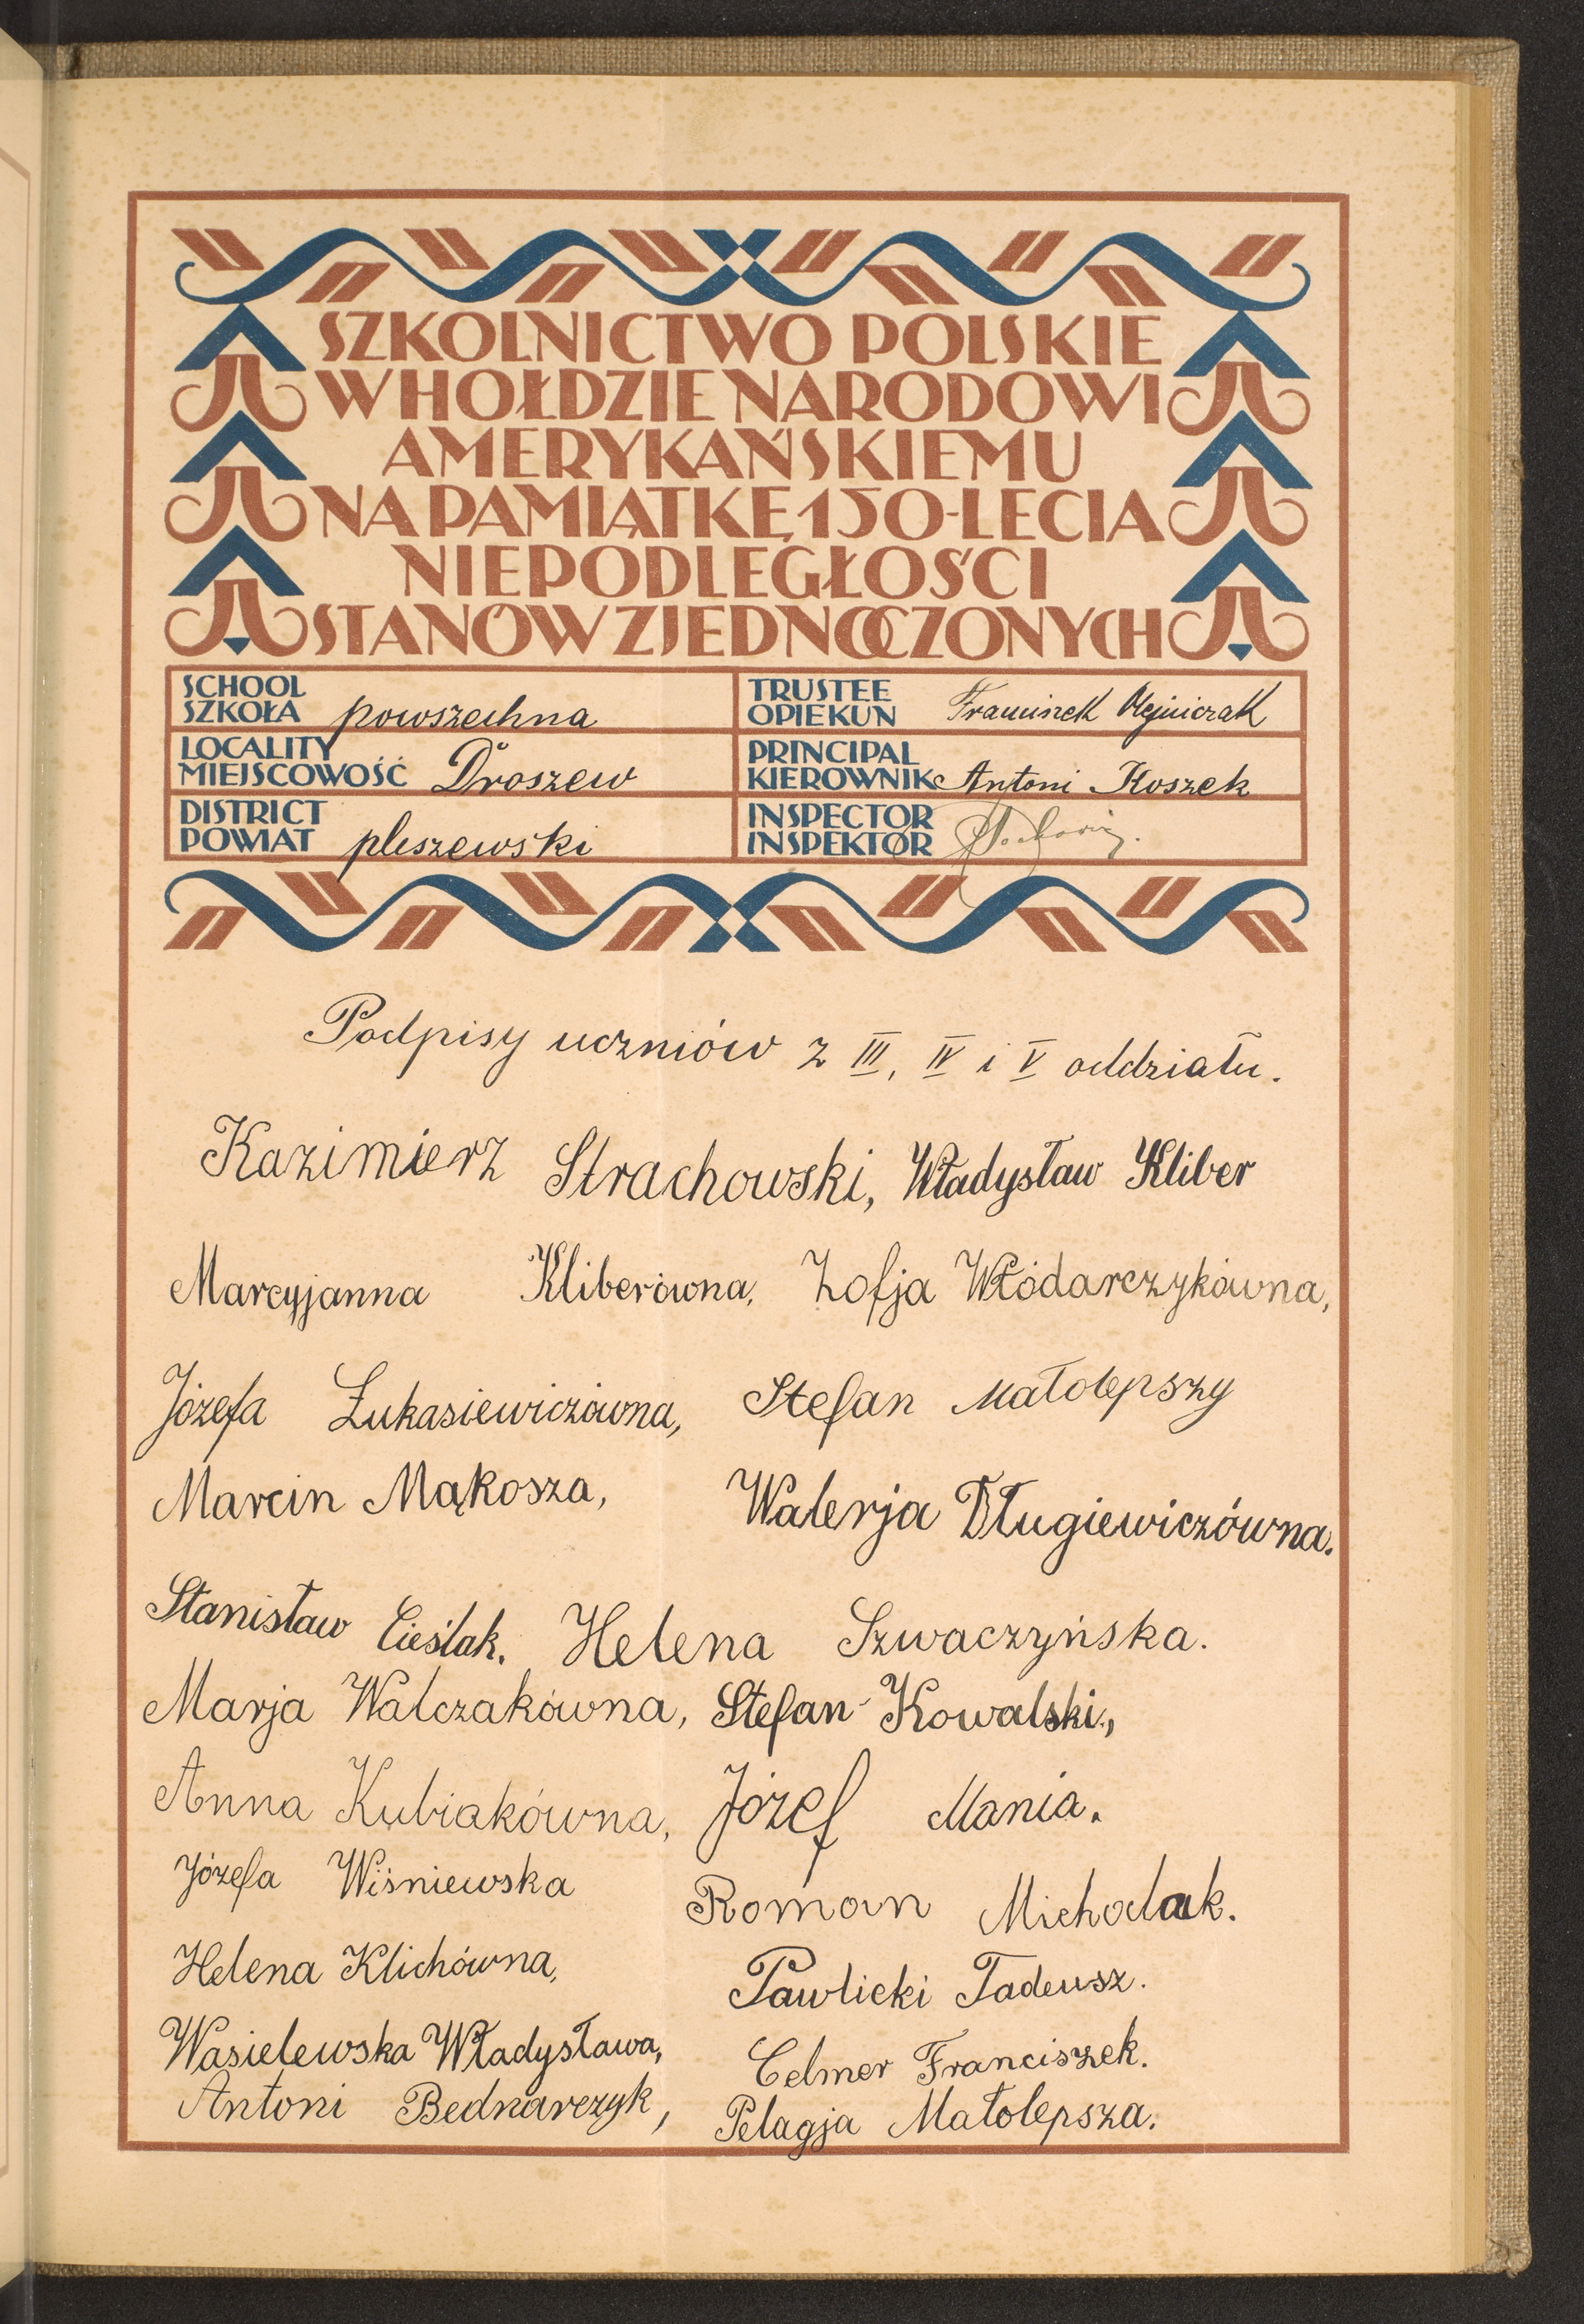 SZKOLNICTWO POLSKIE
W HOŁDZIE NARODOWI
AMERYKAŃSKIEMU
NA PAMIĄTKĘ 150-LECIA
NIEPODLEGŁOŚCI
STANÓW ZJEDNOCZONYCH
SCHOOL
SZKOŁA powszechna
TRUSTEE
OPIEKUN Franciszek Olejniczak
LOCALITY
MIEJSCOWOŚĆ Droszew
PRINCIPAL
KIEROWNIK Antoni Koszek
DISTRICT
POWIAT pleszewski
INSPECTOR
INSPEKTOR
Podpisy uczniów z III, IV i V oddziału.
Kazimierz Strachowski, Władysław Kliber
Marcyjanna Kliberówna, Zofja Włódarczykówna,
Józefa Łukasiewiczówna, Stefan Małolepszy
Marcin Mąkosza, Walerja Długiewiczówna.
Stanisław Cieślak. Helena Szwaczyńska.
Marja Walczakówna, Stefan Kowalski,
Anna Kubiakówna, Józef Mania.
Józefa Wiśniewska Roman Michalak.
Helena Klichówna, Pawlicki Tadeusz.
Wasielewska Władysława, Celmer Franciszek.
Antoni Bednarczyk, Pelagja Małolepsza.